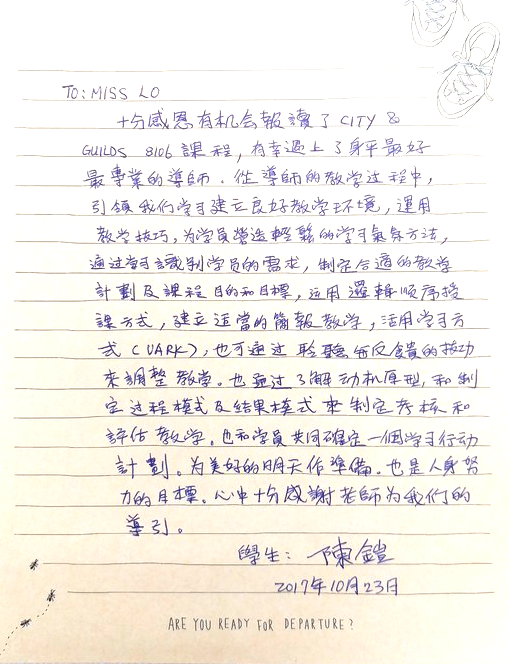 TO: MISS LO
十分感恩有机会報讀了 CITY &
GUILDS 8106 課程，有幸遇上了身平最好
最專業的導師．從導師的教学过程中，
引領我们学习建立良好教学环境，運用
教学技巧，为学員營造輕鬆的学习氣氛方法，
通过学习識別学員的需求，制定合適的教学
計劃及課程目的和目標，运用邏輯順序授
課方式，建立适當的簡報教学，活用学习方
式（VARK），也可通过聆聽与反饋的技功
來調整教学。也通过了解动机原型，和制
定过程模式及結果模式來制定考核和
評估教学。也和学員共同確定一個学习行动
計劃。为美好的明天作準備。也是人身努
力的目標。心中十分感謝老師为我们的
導引。
學生：陳鎧
2017年10月23日
ARE YOU READY FOR DEPARTURE?